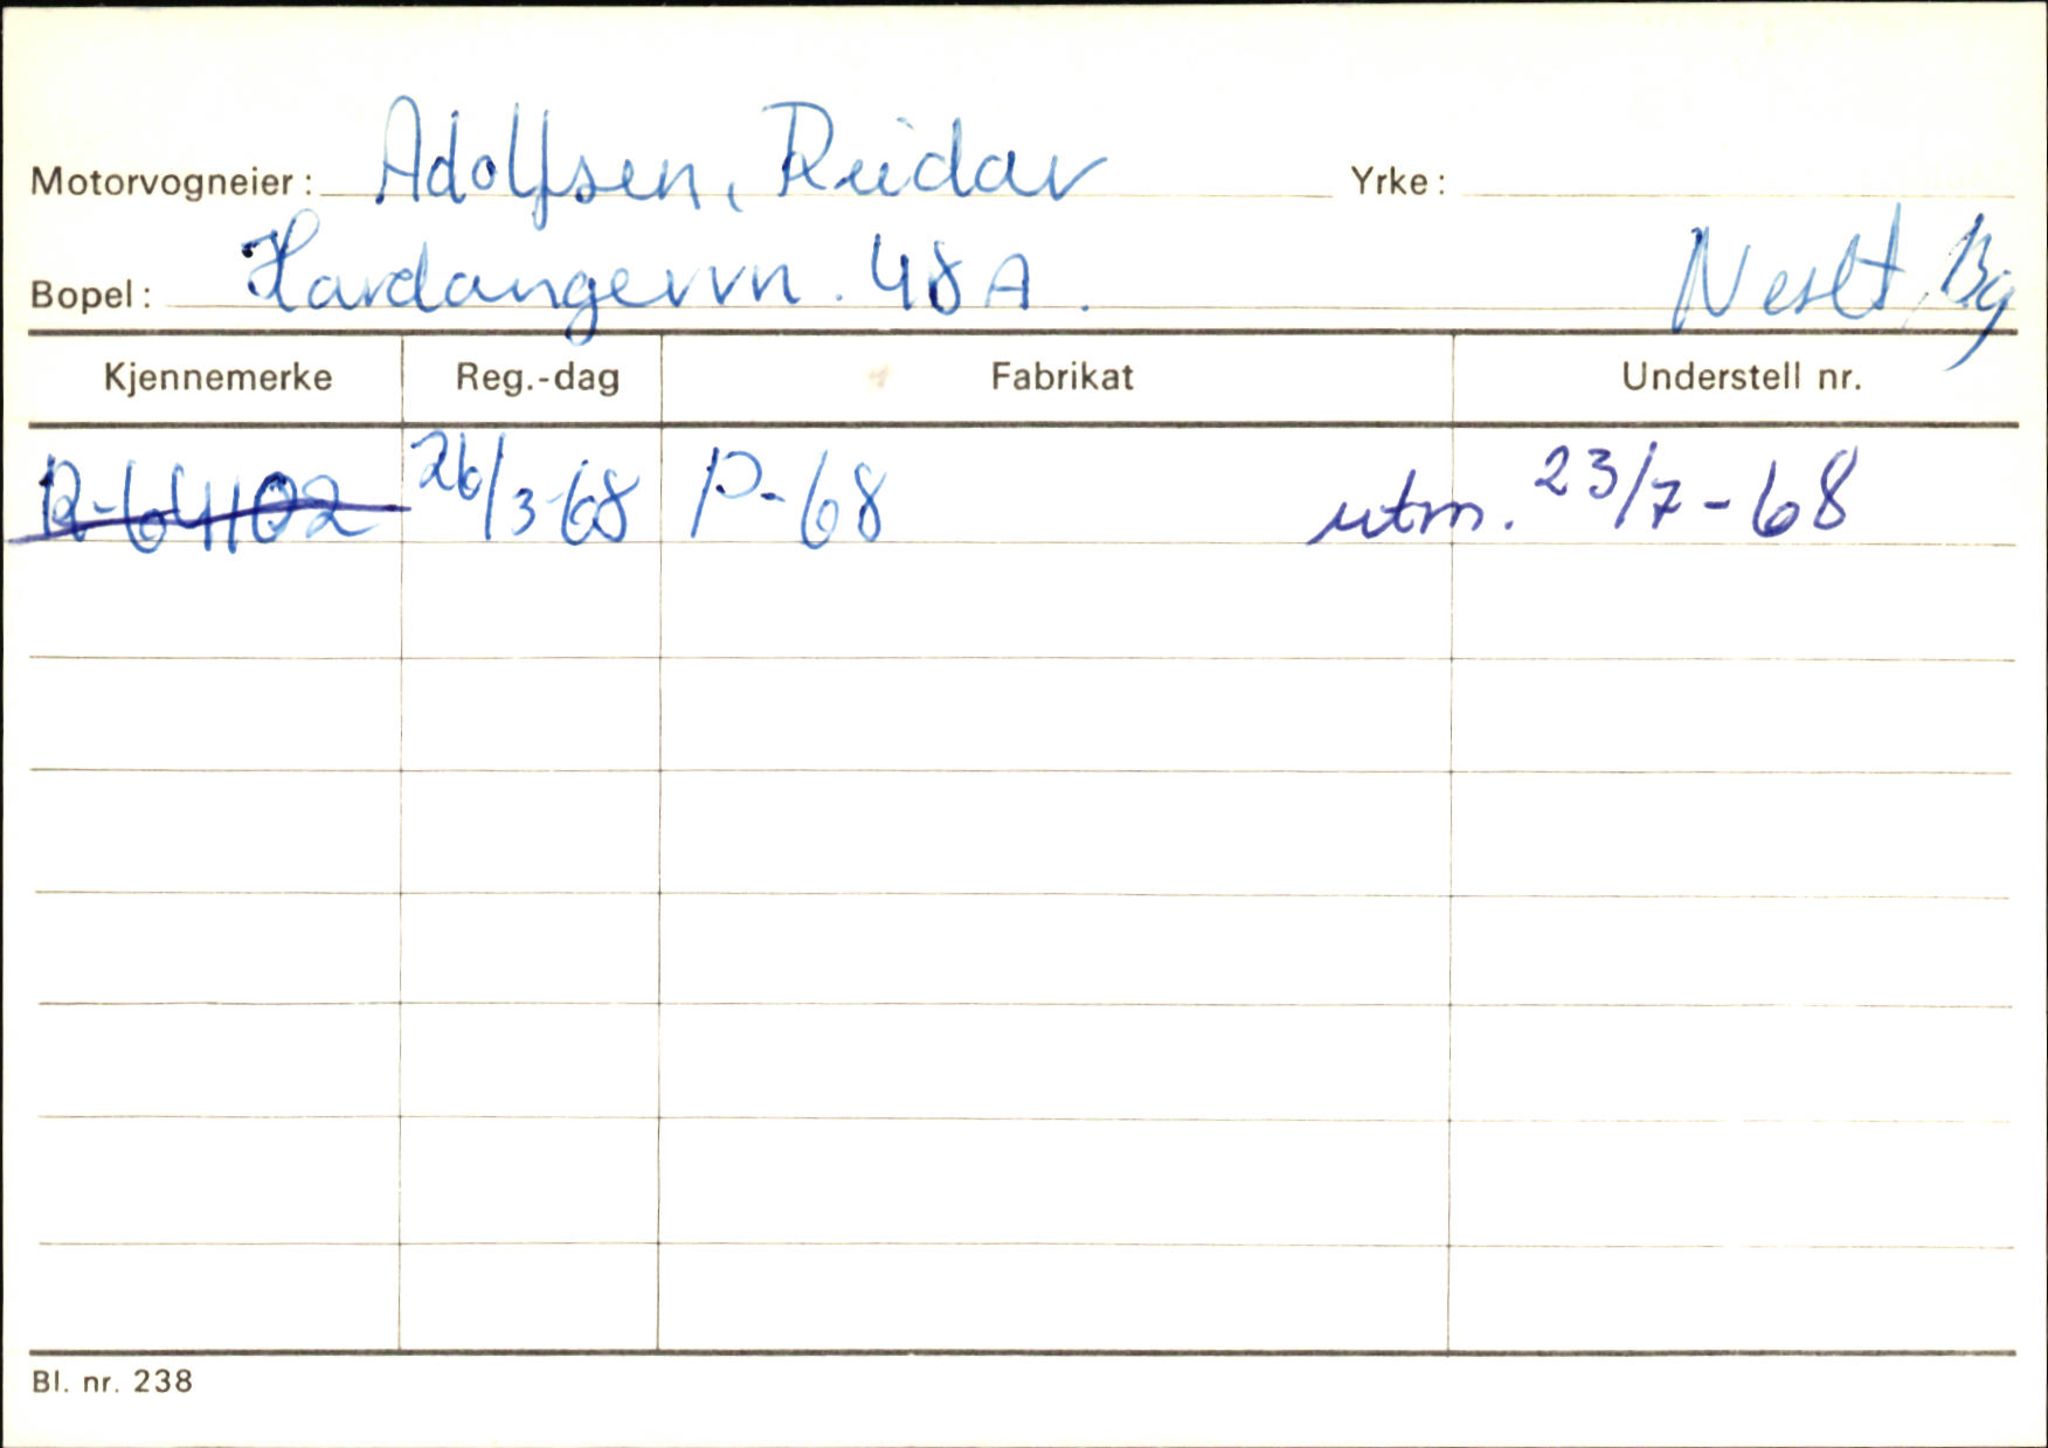 Motorvogneier: Adolfsen, Reidar Yrke:
Bopel: Hardangervn. 48A. Neslt, Bg
Kjennemerke Reg.-dag Fabrikat Understell nr.
R-64102 26/3-68 P-68 utm. 23/7-68
Bl. nr. 238